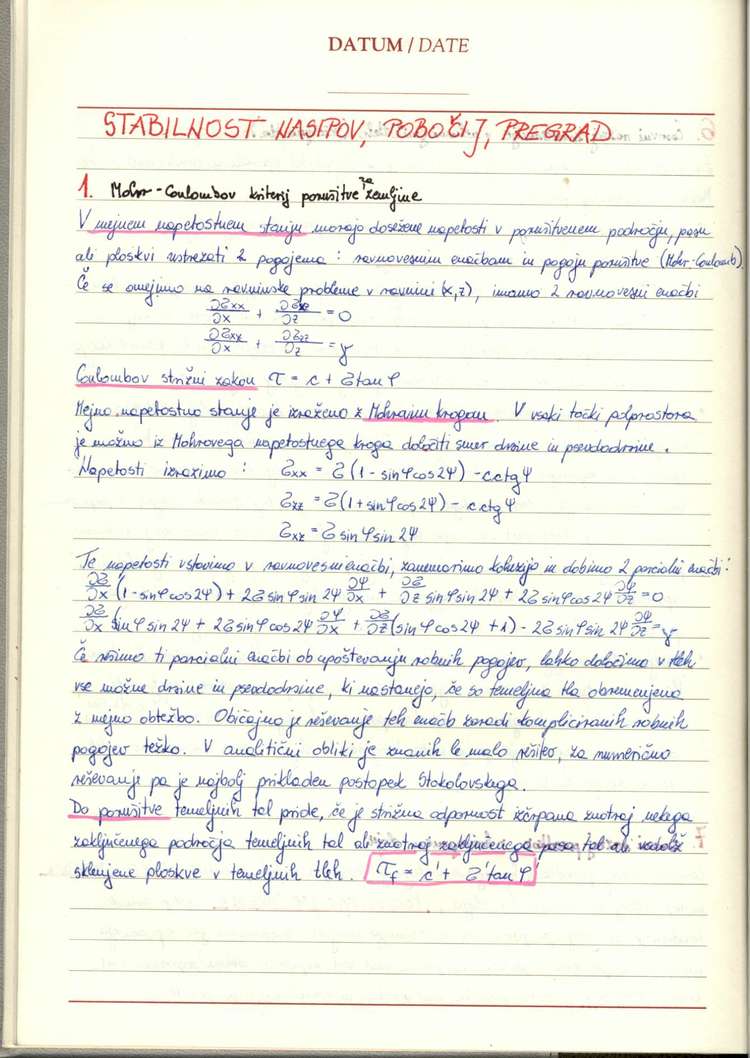 DATUM / DATE
STABILNOST NASIPOV, POBOČIJ, PREGRAD
1. Mohr-Coulombov kriterij porušitve za zemljine
V mejnem napetostnem stanju morajo dosežene napetosti v porušitvenem področju, pasu
ali ploskvi ustrezati 2 pogojema : ravnovesnim enačbam in pogoju porušitve (Mohr-Coulomb).
Če se omejimo na ravninske probleme v ravnini (x,z), imamo 2 ravnovesni enačbi
∂σxx/∂x + ∂σxz/∂z = 0
∂σxz/∂x + ∂σzz/∂z = γ
Coulombov strižni zakon τ = c + σ tan φ
Mejno napetostno stanje je izraženo z Mohrovim krogom. V vsaki točki polprostora
je možno iz Mohrovega napetostnega kroga določiti smer drsine in psevdodrsine.
Napetosti izrazimo : σxx = σ(1 - sin φ cos 2ψ) - c.ctg φ
σzz = σ(1 + sin φ cos 2ψ) - c.ctg φ
σxz = σ sin φ sin 2ψ
Te napetosti vstavimo v ravnovesni enačbi, zanemarimo kohezijo in dobimo 2 parcialni enačbi:
∂σ/∂x (1 - sin φ cos 2ψ) + 2σ sin φ sin 2ψ ∂ψ/∂x + ∂σ/∂z sin φ sin 2ψ + 2σ sin φ cos 2ψ ∂ψ/∂z = 0
∂σ/∂x sin φ sin 2ψ + 2σ sin φ cos 2ψ ∂ψ/∂x + ∂σ/∂z (sin φ cos 2ψ + 1) - 2σ sin φ sin 2ψ ∂ψ/∂z = γ
Če rešimo ti parcialni enačbi ob upoštevanju robnih pogojev, lahko določimo v tleh
vse možne drsine in psevdodrsine, ki nastanejo, če so temeljna tla obremenjena
z mejno obtežbo. Običajno je reševanje teh enačb zaradi kompliciranih robnih
pogojev težko. V analitični obliki je znanih le malo rešitev, za numerično
reševanje pa je najbolj prikladen postopek Stokolovskega.
Do porušitve temeljnih tal pride, če je strižna odpornost izčrpana znotraj nekega
zaključenega področja temeljnih tal ali znotraj zaključenega pasu tal ali vzdolž
sklenjene ploskve v temeljnih tleh. τf = c' + σ' tan φ'